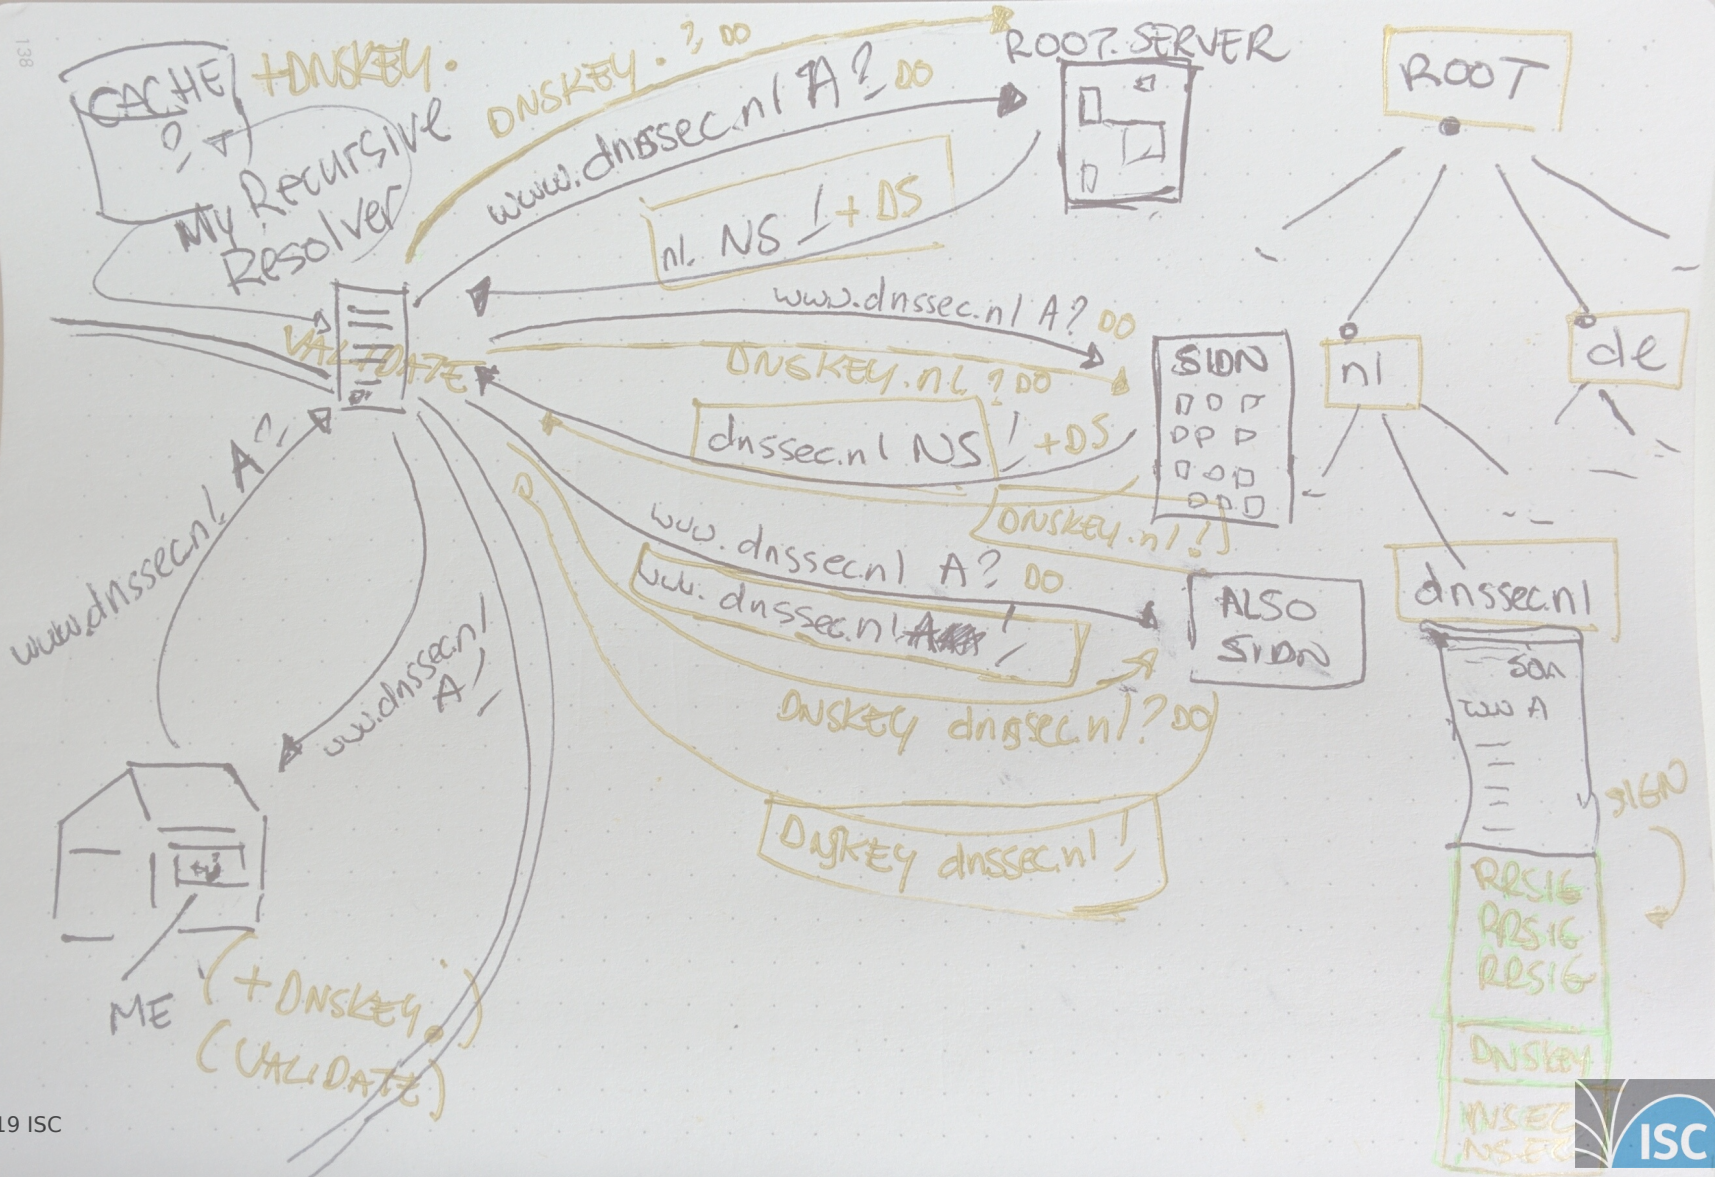 138
CACHE
+DNSKEY.
My Recursive
Resolver
DNSKEY. ? DO
www.dnssec.nl A? DO
ROOT.SERVER
nl. NS ! + DS
VALIDATE
www.dnssec.nl A? DO
DNSKEY.nl ? DO
dnssec.nl NS ! +DS
SIDN
DNSKEY.nl!
www.dnssec.nl A? DO
www.dnssec.nl !
ALSO
SIDN
DNSKEY dnssec.nl? DO
DNSKEY dnssec.nl !
www.dnssec.nl. A?
www.dnssec.nl
A!
ME
(+DNSKEY.)
(VALIDATE)
ROOT
nl
de
dnssec.nl
SOA
www A
SIGN
RRSIG
RRSIG
RRSIG
DNSKEY
NSEC
NSEC
19 ISC
ISC